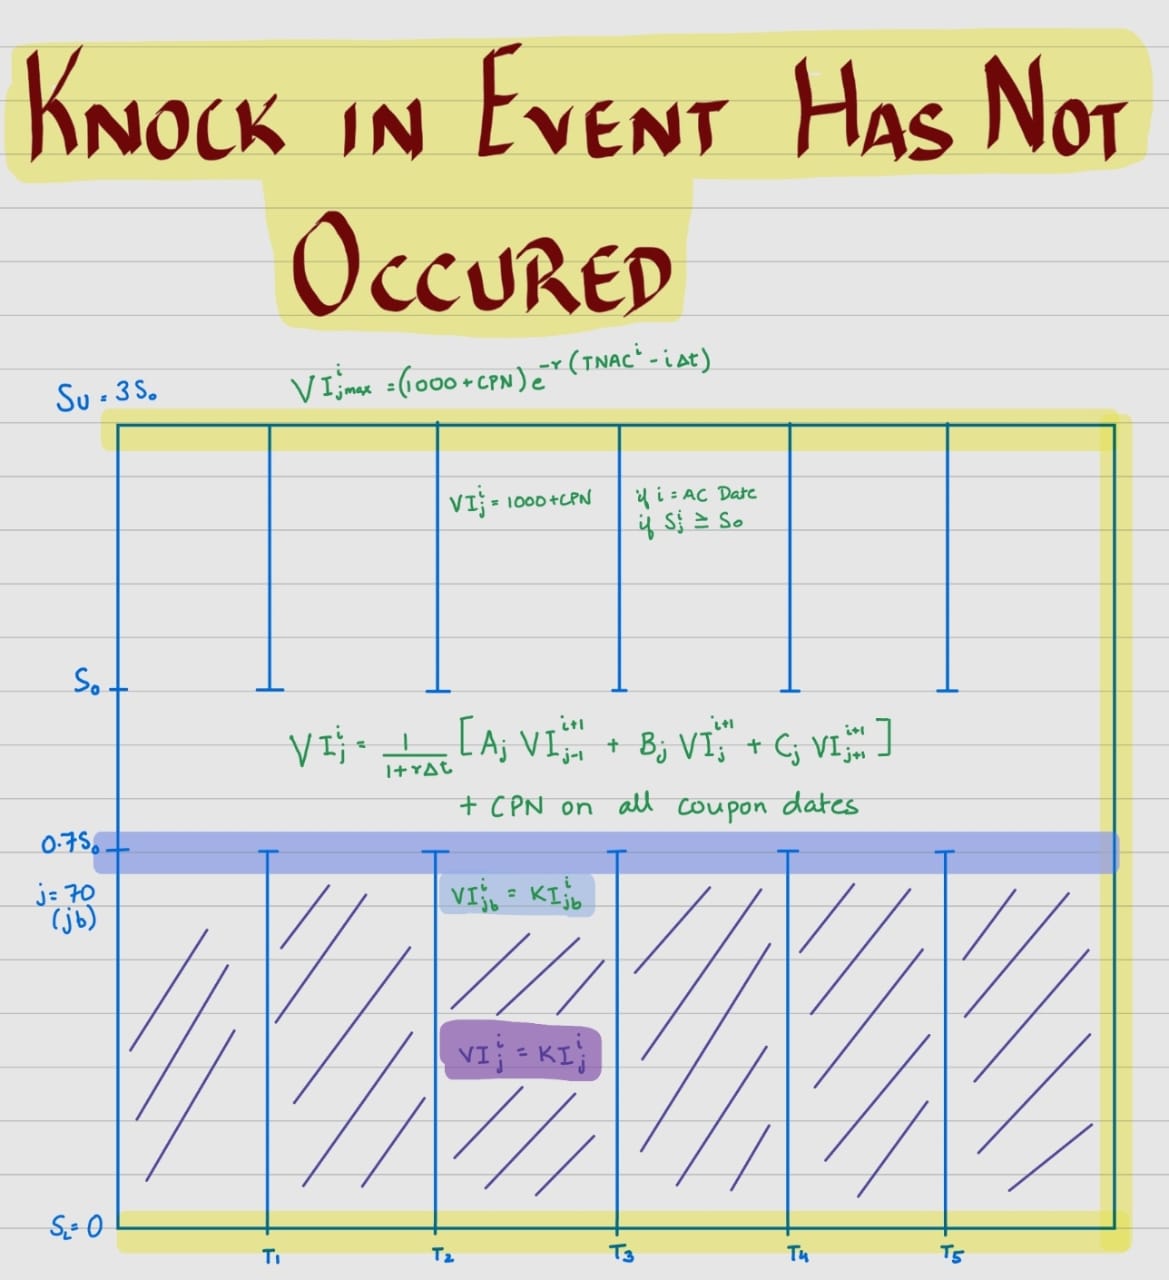 KNOCK IN EVENT HAS NOT
OCCURED
VI^i_jmax = (1000 + CPN) e^-r(TNAC^i - iΔt)
Su = 3S₀
VI^i_j = 1000 + CPN
if i = AC Date
if S^i_j ≥ S₀
S₀
VI^i_j = 1/(1+rΔt) [A_j VI^i+1_j-1 + B_j VI^i+1_j + C_j VI^i+1_j+1]
+ CPN on all coupon dates
0.7S₀
j = 70
(jb)
VI^i_jb = KI^i_jb
VI^i_j = KI^i_j
S_L = 0
T₁ T₂ T₃ T₄ T₅